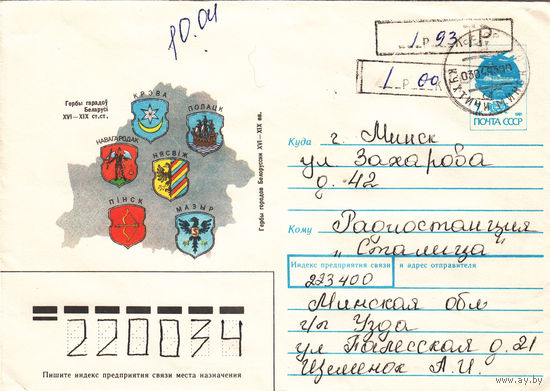 10.04
1 р 93 к
1 р 00 к
ПОЧТА СССР
Гербы гарадоў
Беларусі
XVI—XIX ст.ст.
КРЭВА
ПОЛАЦК
НАВАГАРОДАК
НЯСВІЖ
ПІНСК
МАЗЫР
Гербы городов Белоруссии XVI—XIX вв.
Куда
г. Минск
ул Захарова
д. 42
Кому
Радиостанция
"Сталица"
Индекс предприятия связи и адрес отправителя
223400
Минская обл
г/п Узда
ул Палесская д. 21
А.И.
220034
Пишите индекс предприятия связи места назначения
www.ay.by